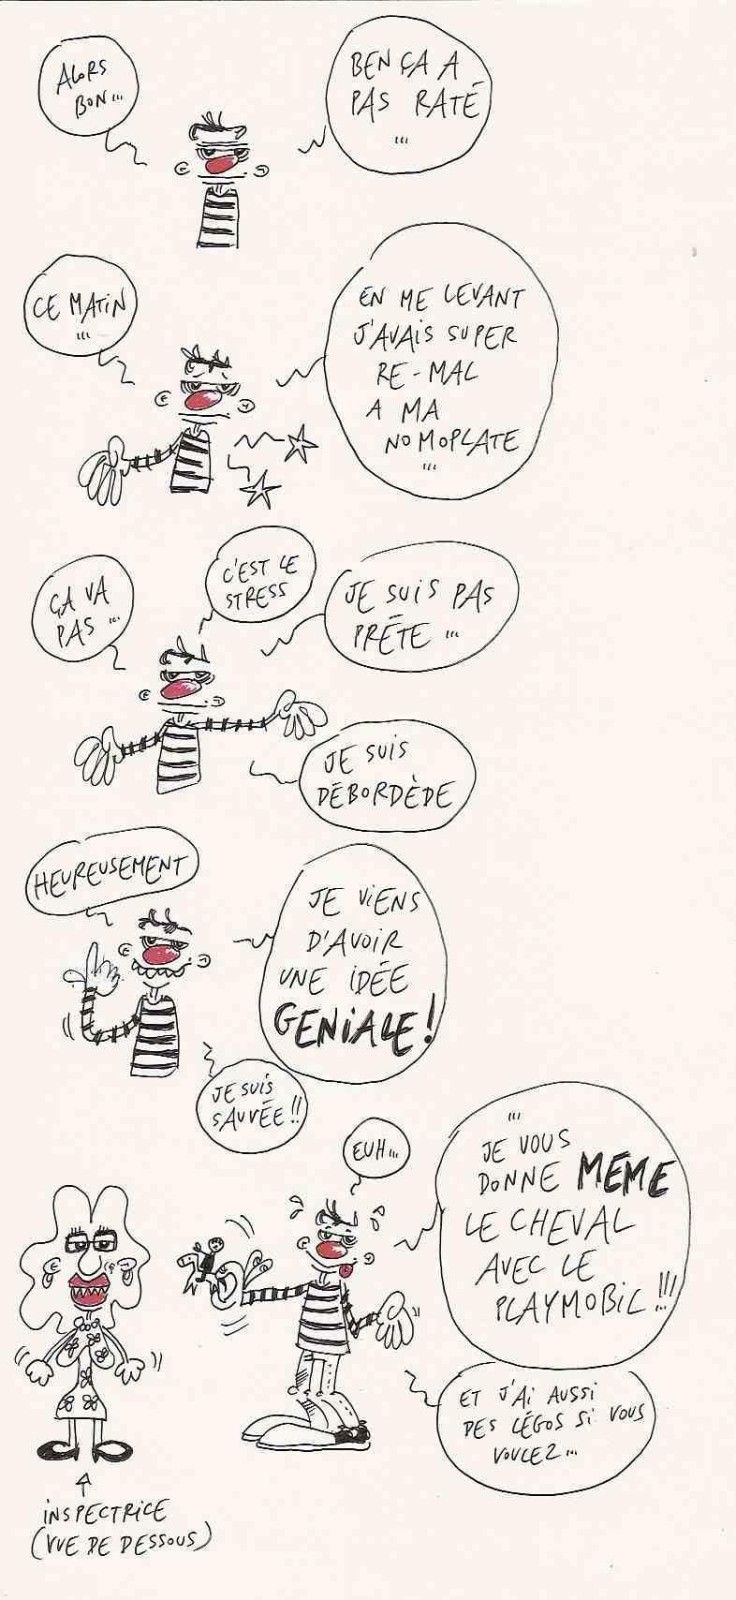 ALORS
BON...
BEN ÇA A
PAS RATÉ
...
CE MATIN
...
EN ME LEVANT
J'AVAIS SUPER
RE-MAL
A MA
NOMOPLATE
...
ÇA VA
PAS...
C'EST LE
STRESS
JE SUIS PAS
PRÊTE...
JE SUIS
DÉBORDÈDE
HEUREUSEMENT
JE VIENS
D'AVOIR
UNE IDÉE
GENIALE!
JE SUIS
SAUVÉE!!
EUH...
...
JE VOUS
DONNE MEME
LE CHEVAL
AVEC LE
PLAYMOBIL!!!
ET J'AI AUSSI
DES LÉGOS SI VOUS
VOULEZ...
INSPECTRICE
(VUE DE DESSOUS)